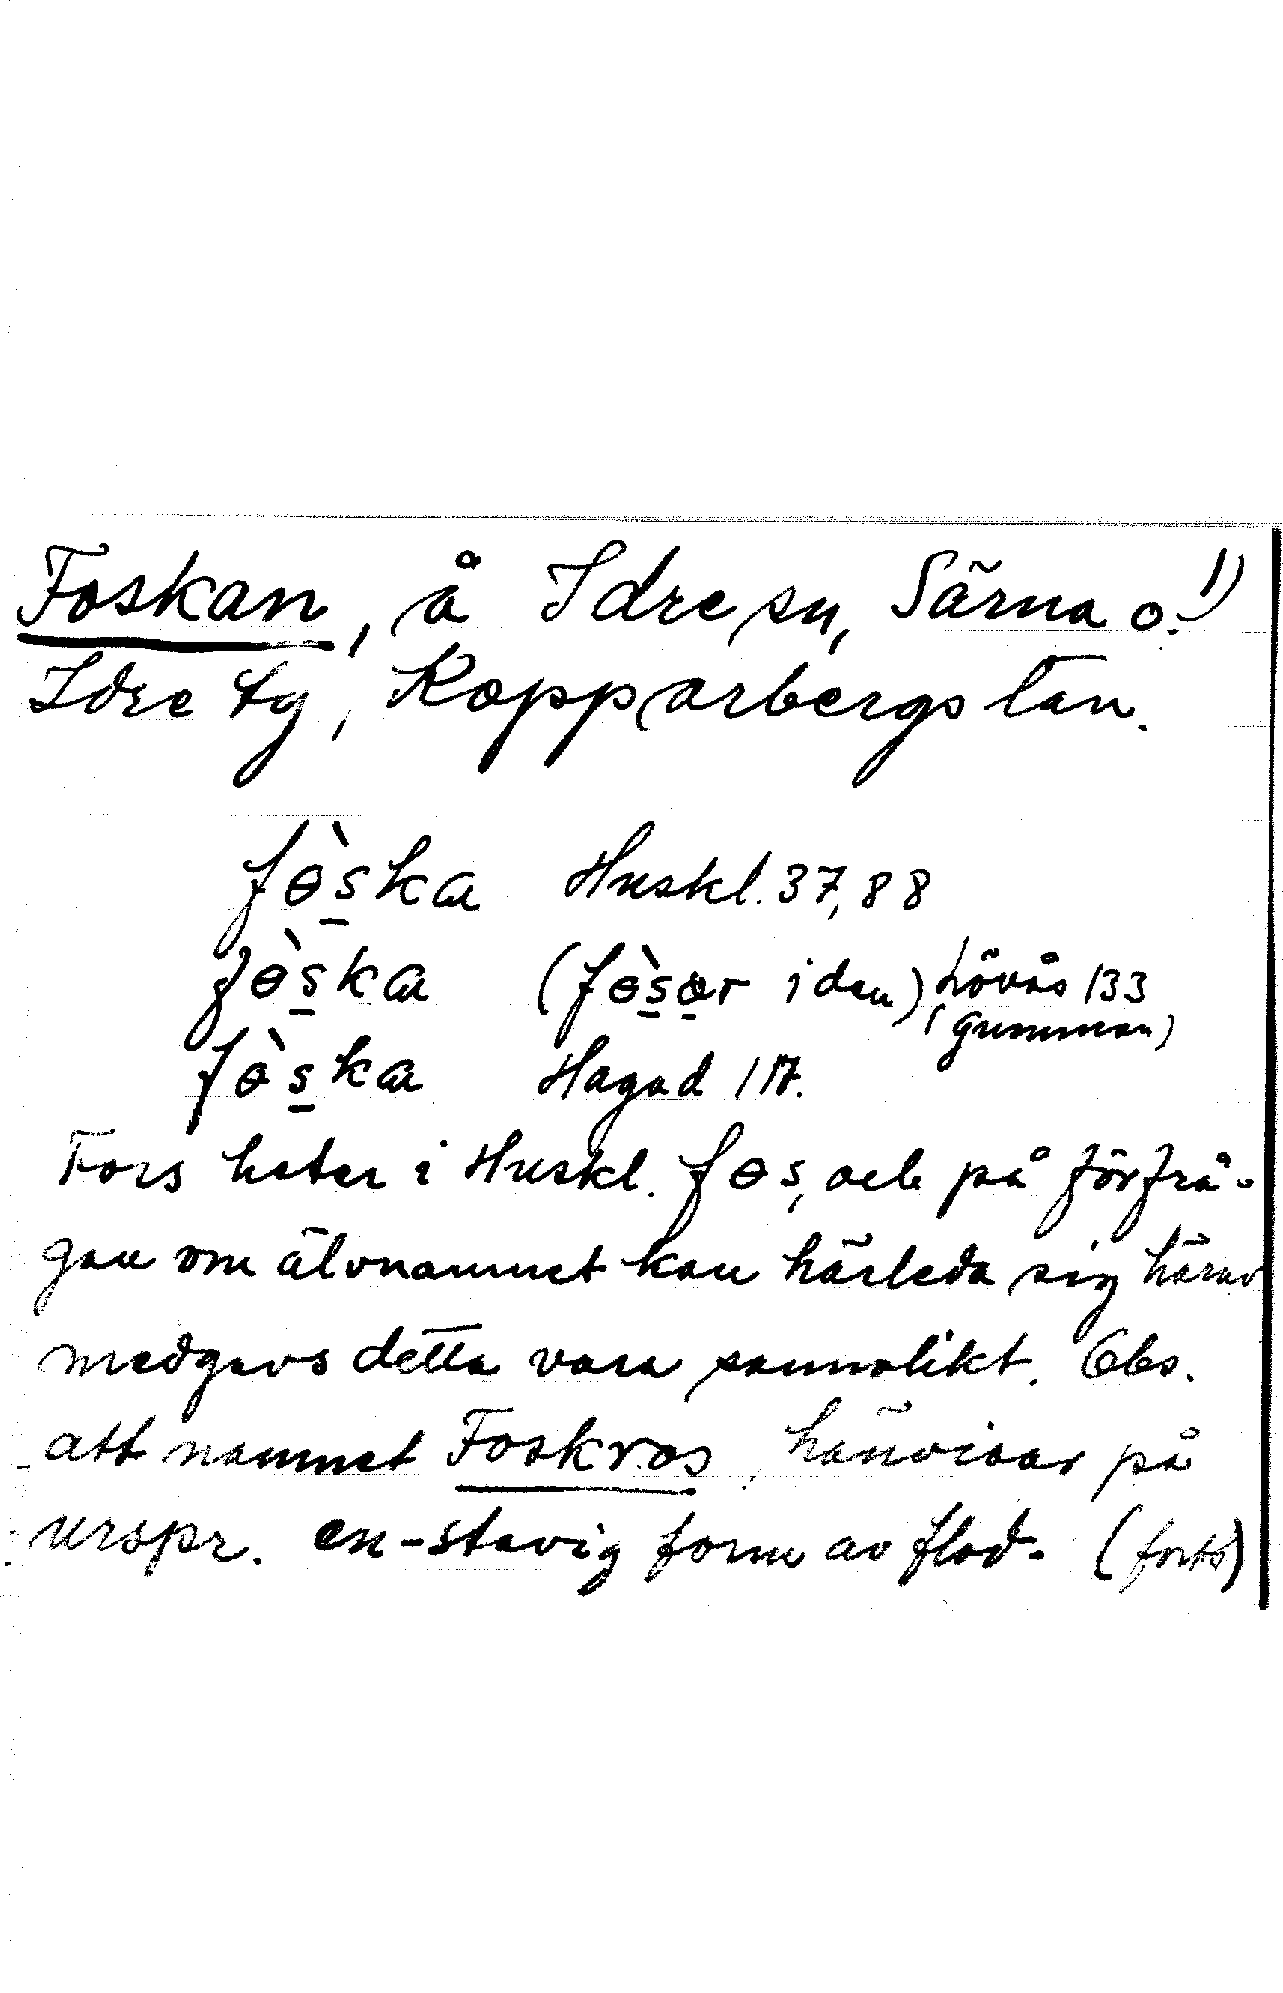 Foskan, å Idre sn, Särna o. 1)
Idre tg, Kopparbergs län.
fɵ̀s̱ka Huskl. 37, 88
fɵ̀s̱ka (fɵ̀s̱ər i den) Lövås 133
(gumman)
fɵ̀s̱ka Hagad 117.
Fors heter i Huskl. fɵs, och på förfrå-
gan om älvnamnet kan härleda sig härav
medgavs detta vara sannolikt. Obs.
att namnet Foskros, hänvisar på
urspr. en-stavig form av flod- (forts)